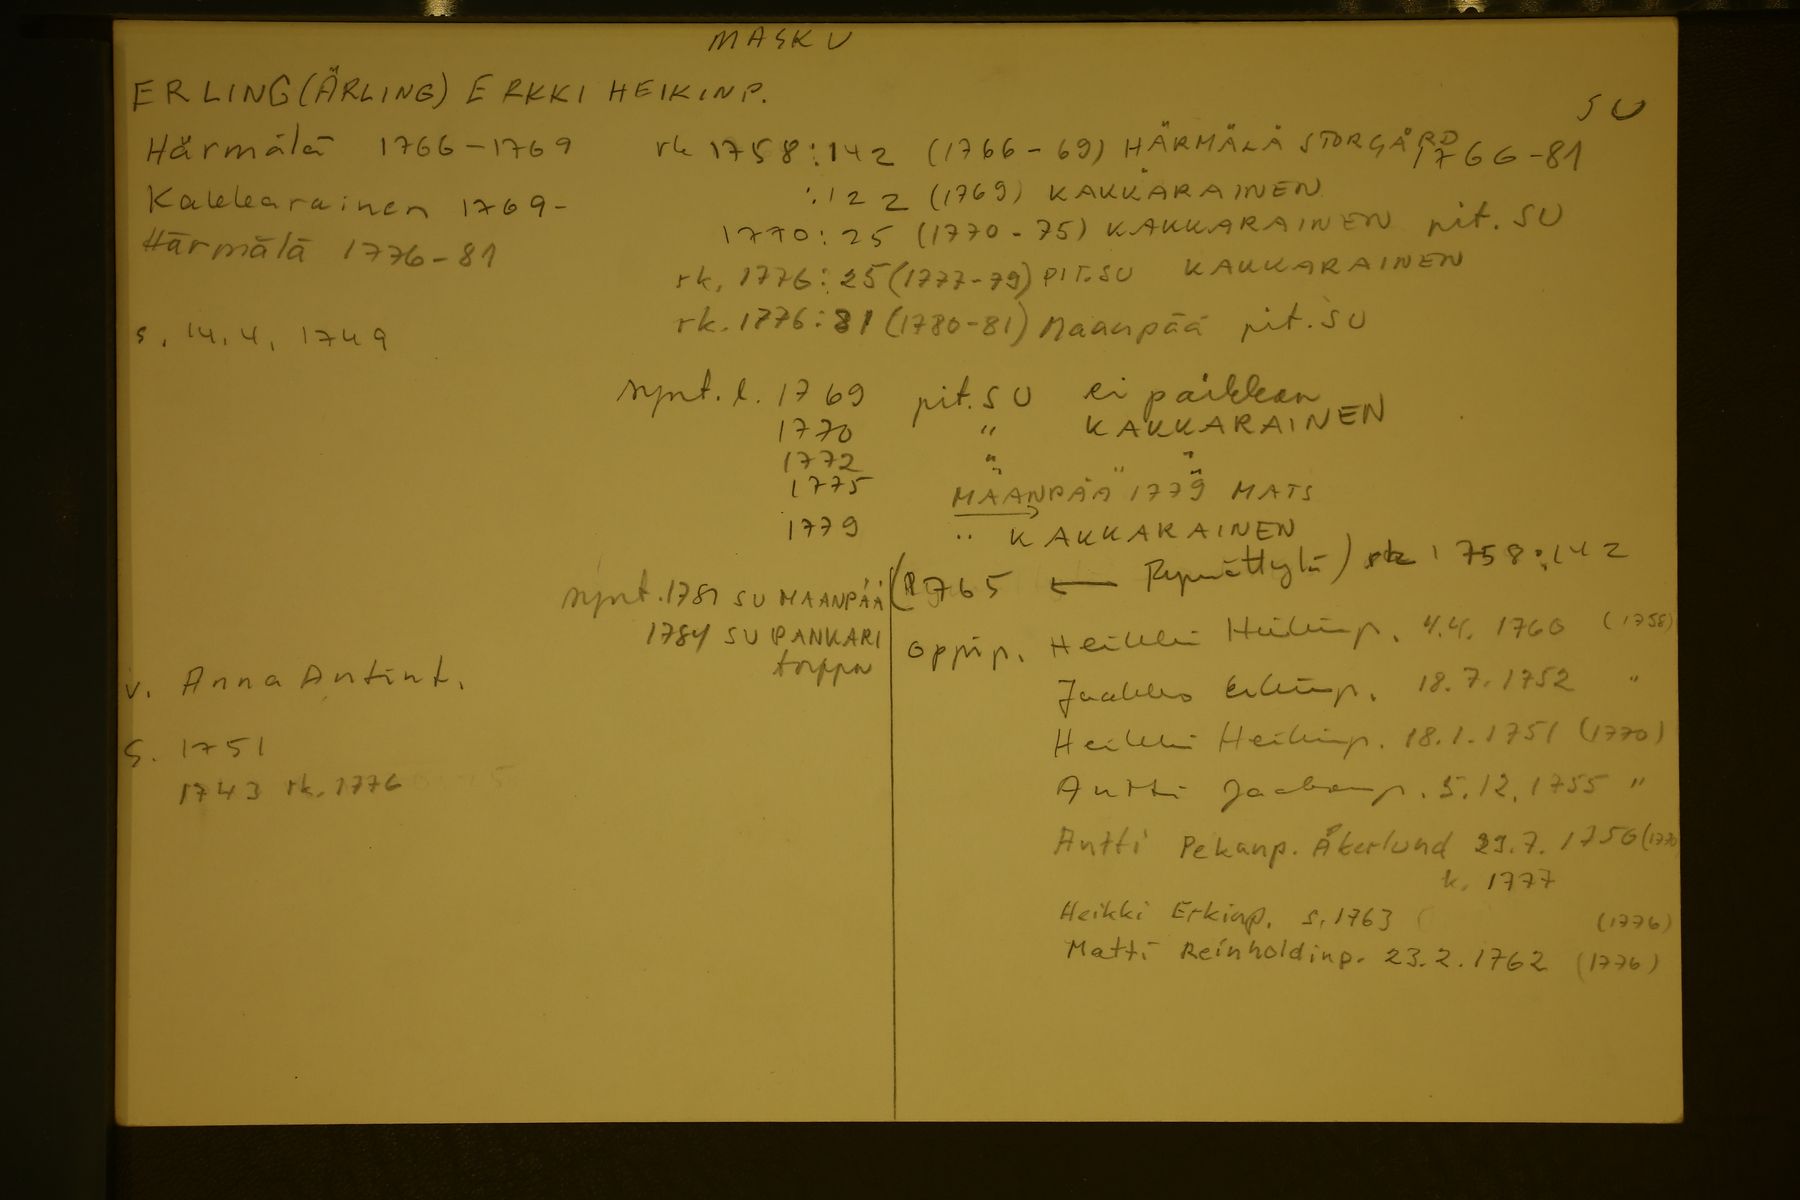 MASKU
ERLING (ÄRLING) ERKKI HEIKINP.
SU
Härmälä 1766-1769
rk 1758:142 (1766-69) HÄRMÄLÄ STORGÅRD 1766-81
Kakkarainen 1769-
:122 (1769) KAKKARAINEN
Härmälä 1776-81
1770:25 (1770-75) KAKKARAINEN pit. SU
rk. 1776:25 (1777-79) PIT.SU KAKKARAINEN
s. 14.4. 1749
rk. 1776:81 (1780-81) Maanpää pit. SU
synt. l. 1769 pit. SU ei paikkaa
1770 " KAKKARAINEN
1772 " "
1775 " " "
MAANPÄÄ 1779 MATS
1779 " KAKKARAINEN
synt. 1781 SU MAANPÄÄ
1784 SU PANKARI
torppa
(1765 ← Rymättylä) rk 1758:142
oppip. Heikki Heikinp. 4.4. 1760 (1758)
v. Anna Antint.
Jaakko Erkinp. 18.7.1752 "
s. 1751
Heikki Heikinp. 18.1.1751 (1770)
1743 rk. 1776
Antti Jaakonp. 5.12.1755 "
Antti Pekanp. Åkerlund 29.7. 1756 (1770
k. 1777
Heikki Erkinp. s. 1763 (1776)
Matti Reinholdinp. 23.2.1762 (1776)